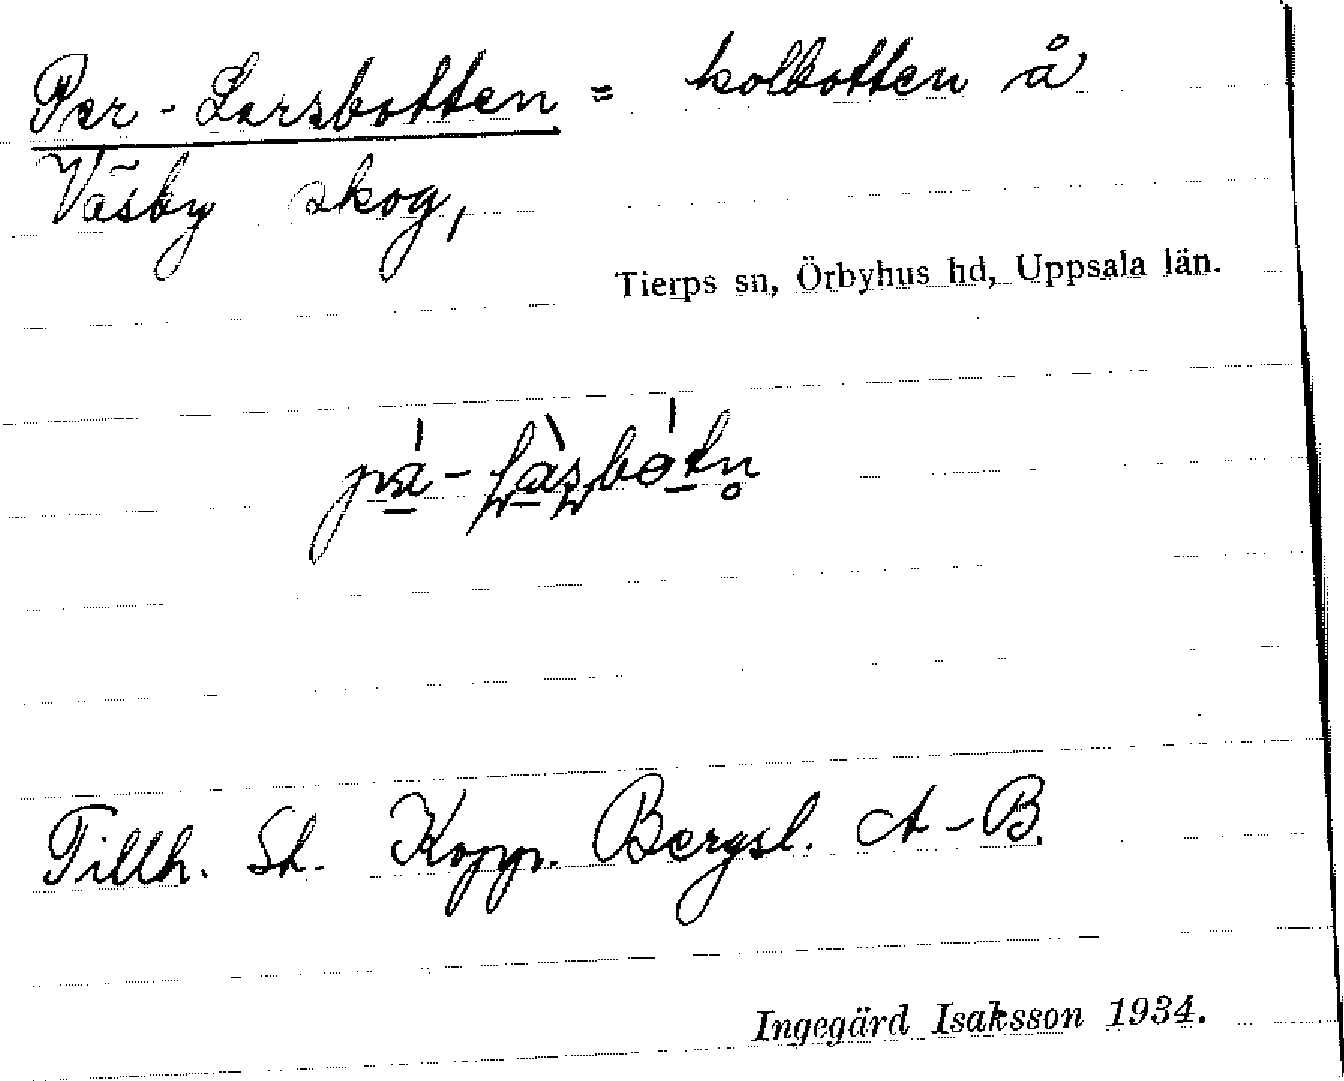 Per-Larsbotten = kolbotten å
Väsby skog,
Tierps sn, Örbyhus hd, Uppsala län.
Tillh. St. Kopp. Bergsl. A-B.
Ingegärd Isaksson 1934.